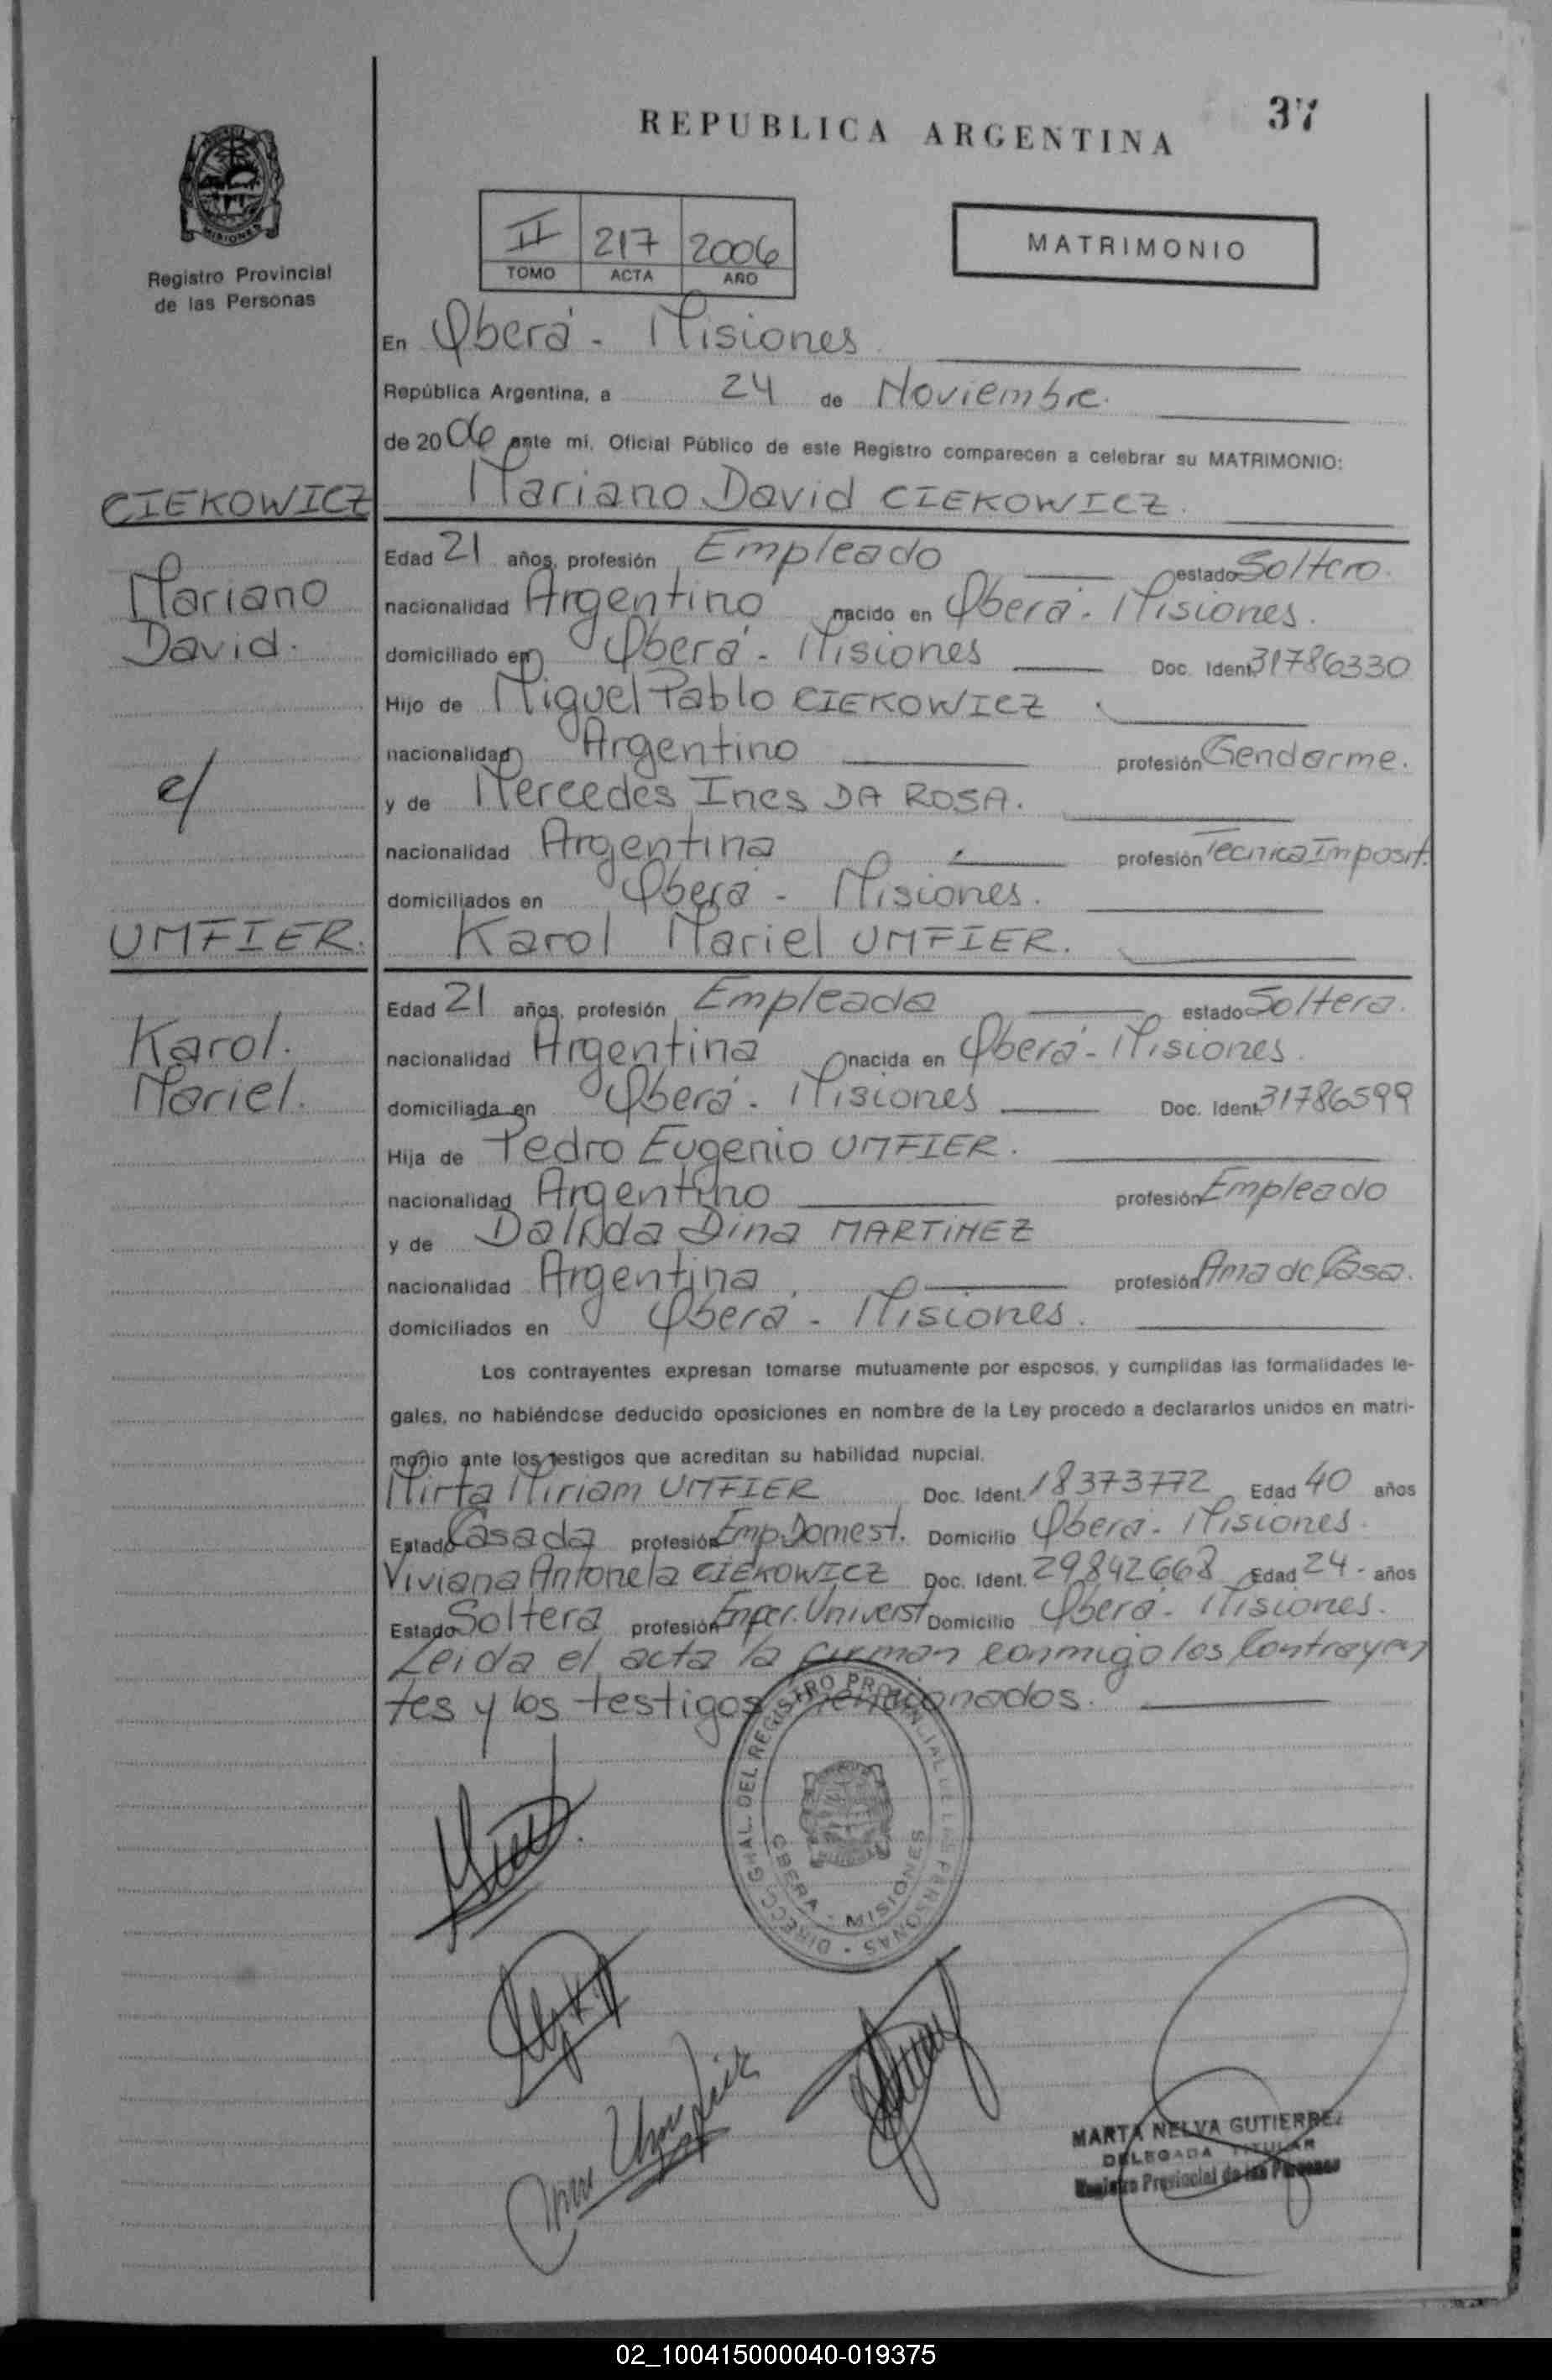 REPUBLICA ARGENTINA
37
MISIONES
Registro Provincial
de las Personas
II 217 2006
TOMO ACTA AÑO
MATRIMONIO
En Oberá - Misiones
República Argentina, a 24 de Noviembre.
de 2006 ante mí, Oficial Público de este Registro comparecen a celebrar su MATRIMONIO:
CIEKOWICZ
Mariano
David.
c/
UMFIER.
Karol.
Mariel.
Mariano David CIEKOWICZ.
Edad 21 años, profesión Empleado estado Soltero.
nacionalidad Argentino nacido en Oberá - Misiones.
domiciliado en Oberá - Misiones Doc. Ident. 31786330
Hijo de Miguel Pablo CIEKOWICZ
nacionalidad Argentino profesión Gendarme.
y de Mercedes Ines DA ROSA.
nacionalidad Argentina profesión Tecnica Imposit.
domiciliados en Oberá - Misiones.
Karol Mariel UMFIER.
Edad 21 años, profesión Empleada estado Soltera.
nacionalidad Argentina nacida en Oberá - Misiones.
domiciliada en Oberá - Misiones Doc. Ident. 31786599
Hija de Pedro Eugenio UMFIER.
nacionalidad Argentino profesión Empleado
y de Dalinda Dina MARTINEZ
nacionalidad Argentina profesión Ama de Casa.
domiciliados en Oberá - Misiones.
Los contrayentes expresan tomarse mutuamente por esposos, y cumplidas las formalidades le-
gales, no habiéndose deducido oposiciones en nombre de la Ley procedo a declararlos unidos en matri-
monio ante los testigos que acreditan su habilidad nupcial.
Mirta Miriam UMFIER Doc. Ident. 18373772 Edad 40 años
Estado Casada profesión Emp. Domest. Domicilio Oberá - Misiones.
Viviana Antonela CIEKOWICZ Doc. Ident. 29842668 Edad 24 - años
Estado Soltera profesión Enfer. Universt Domicilio Oberá - Misiones.
Leida el acta la firman conmigo los Contrayen
tes y los testigos mencionados.
DIRECC. GRAL. DEL REGISTRO PROVINCIAL DE LAS PERSONAS
OBERA - MISIONES
MARTA NELVA GUTIERREZ
DELEGADA TITULAR
Registro Provincial de las Personas
02_100415000040-019375